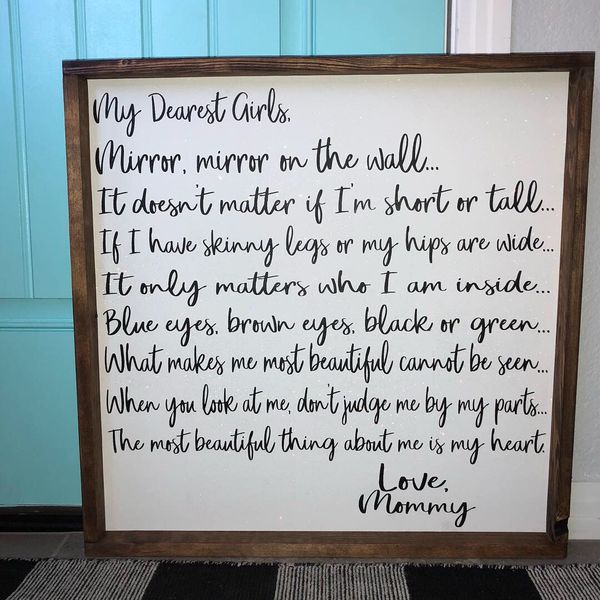 My Dearest Girls,
Mirror, mirror on the wall...
It doesn't matter if I'm short or tall...
If I have skinny legs or my hips are wide...
It only matters who I am inside...
Blue eyes, brown eyes, black or green...
What makes me most beautiful cannot be seen...
When you look at me, don't judge me by my parts...
The most beautiful thing about me is my heart.
Love,
Mommy